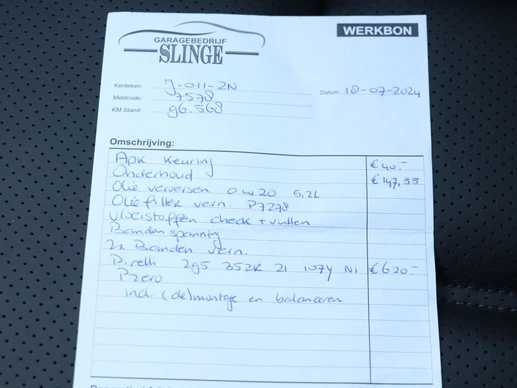 GARAGEBEDRIJF
SLINGE
WERKBON
Kenteken: J-011-ZN
Datum: 18-07-2024
Meldcode: 7578
KM Stand: 96.568
Omschrijving:
APK Keuring €40,-
Onderhoud €147,55
Olie verversen 0w20 5,2L
Oliefilter vern. P7278
Vloeistoffen check + vullen
Banden spanning
2x Banden vern.
Pirelli 295 35ZR 21 107Y N1 €620,-
Pzero
incl (de)montage en balanceren